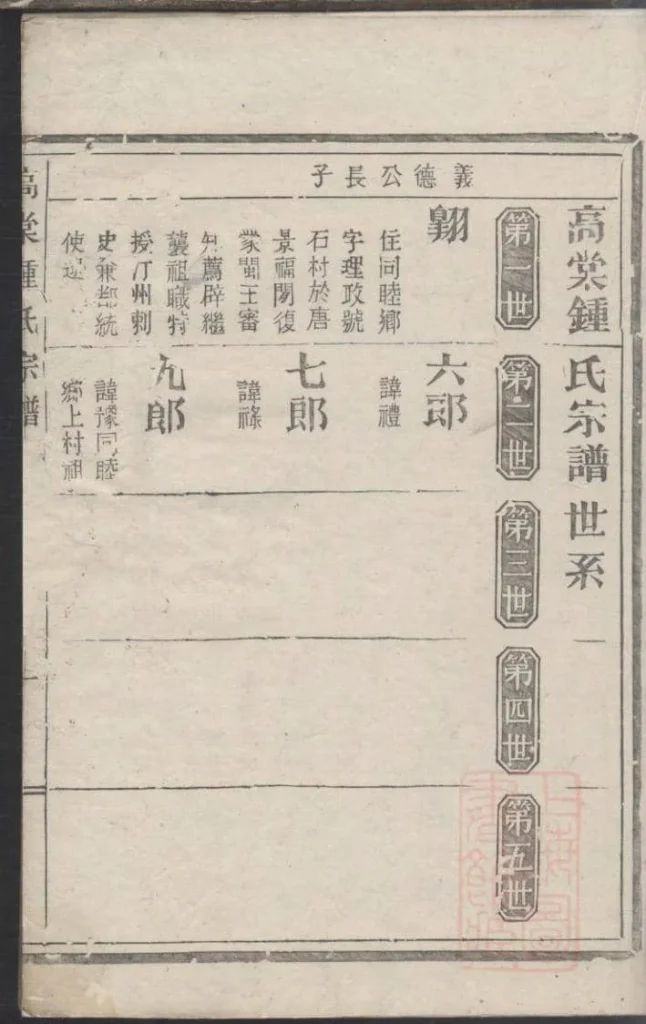 高棠鍾氏宗譜世系
第一世
第二世
第三世
第四世
第五世
義德公長子
翱
住同睦鄉
字理政號
石村於唐
景福閒復
蒙閩王審
知薦辟繼
襲祖職特
授汀州刺
史兼都統
使
六郎
諱禮
七郎
諱祿
九郎
諱豫同睦
鄉上村祖
高棠鍾氏宗譜